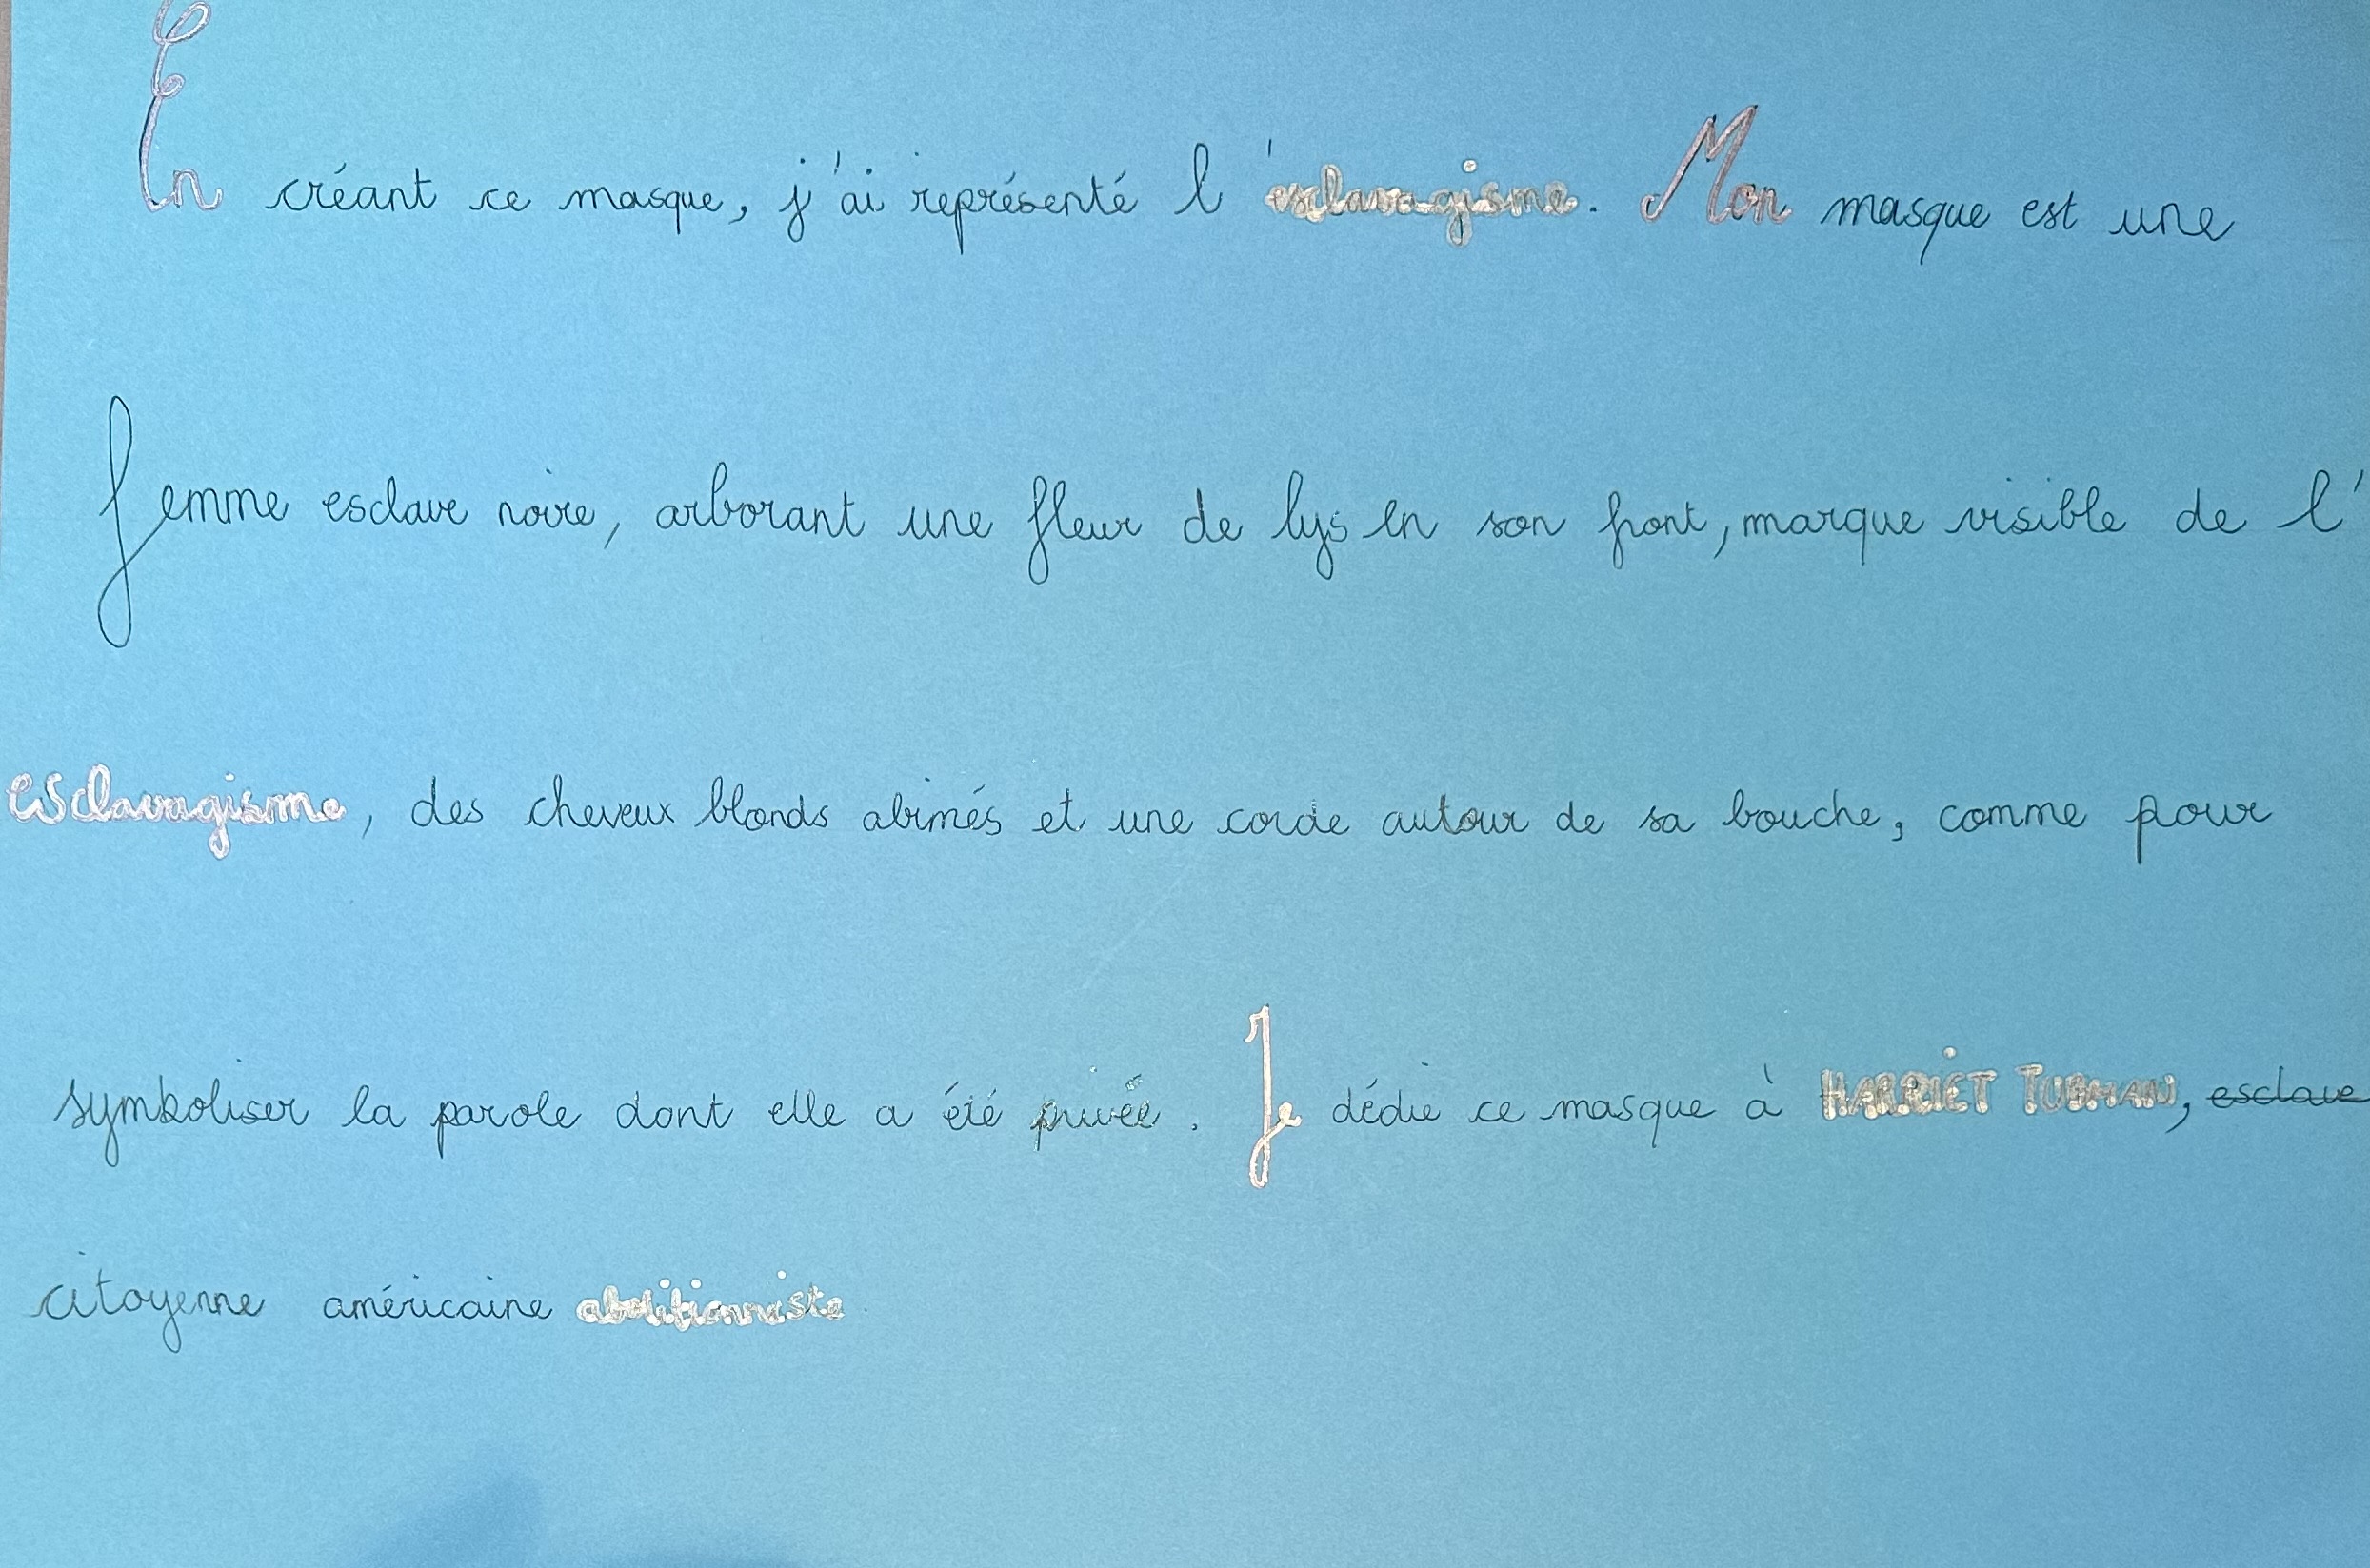 En créant ce masque, j'ai représenté l'esclavagisme. Mon masque est une
femme esclave noire, arborant une fleur de lys en son front, marque visible de l'
esclavagisme, des cheveux blonds abimés et une corde autour de sa bouche, comme pour
symboliser la parole dont elle a été privée. Je dédie ce masque à HARRIET TUBMAN, esclave
citoyenne américaine abolitionniste